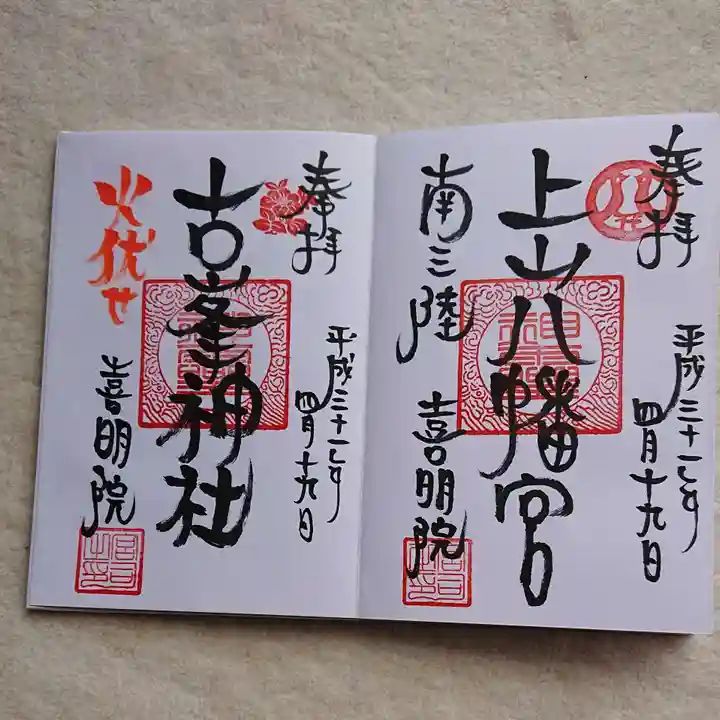 奉拝
上山八幡宮
南三陸
喜明院
平成三十一年
四月十九日
奉拝
古峯神社
火伏せ
喜明院
平成三十一年
四月十九日